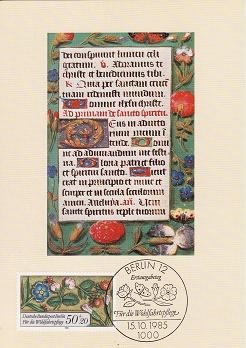 dei conspirent humere celi
gratiam. V. Adoramus te
christe et benedicimus tibi.
R. Quia per sanctam crucem
tuam redemisti mundum.
Domine ihesu christe.
Ad primam de sancto spiritu.
Deus in adiu
torium meum in
tende. Domine
ad adiuuandum me festi
na. Gloria patri et filio
et spiritui sancto. Sicut
erat in principio et nunc et
semper et in secula seculorum
amen. Alleluia.
sancti spiritus reple tuorum
Deutsche Bundespost Berlin
Für die Wohlfahrtspflege
50+20
BERLIN 12
Erstausgabetag
Für die Wohlfahrtspflege
15.10.1985
1000